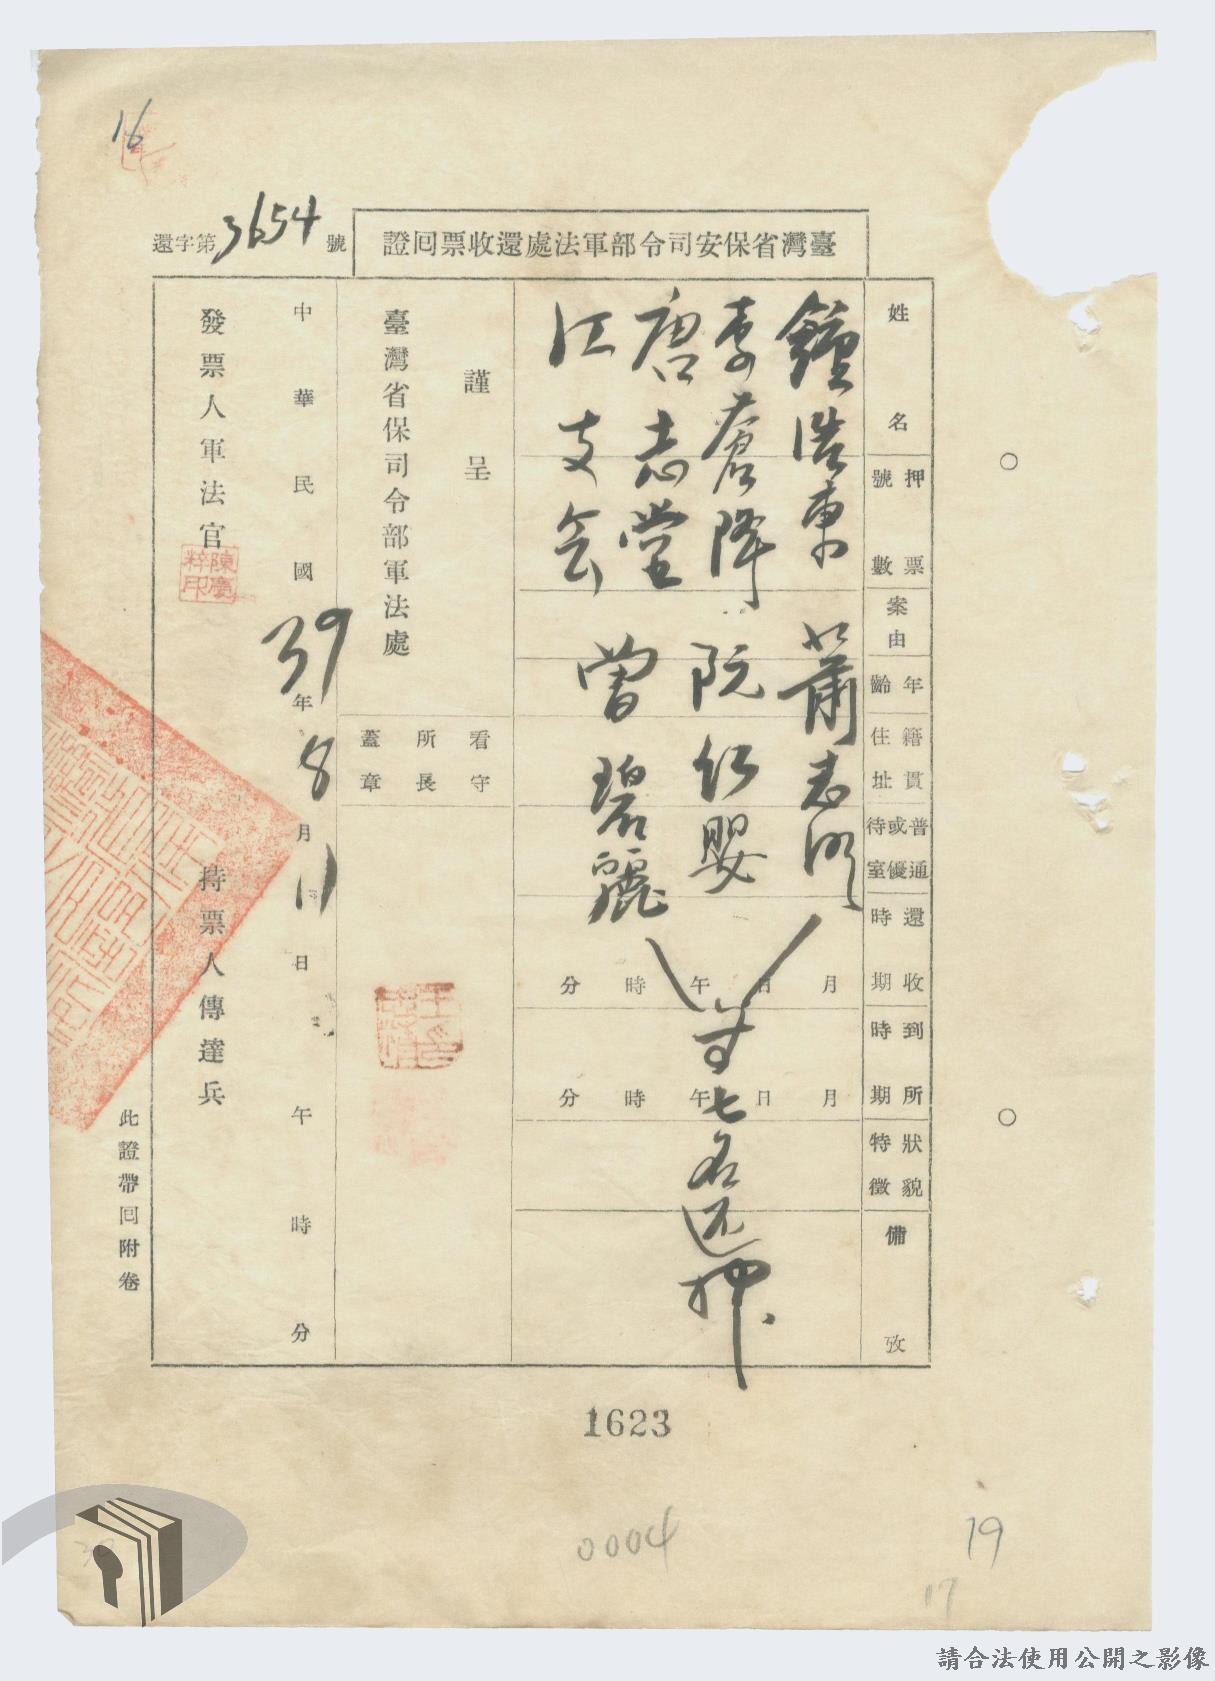 16
臺灣省保安司令部軍法處還收票回證
還字第3654號
姓名
押票號數
案由
年齡
籍貫住址
普通或優待室
還收時期
到所時期
狀貌特徵
備攷
鍾浩東 蕭志明
李蒼降 阮紅嬰
唐志堂 曾碧麗
江支会
等七名还押
月日午時分
月日午時分
謹呈
臺灣省保司令部軍法處
看守所長蓋章
中華民國39年8月11日午時分
發票人軍法官
陳慶粹印
持票人傳達兵
此證帶回附卷
1623
0004
19
17
請合法使用公開之影像